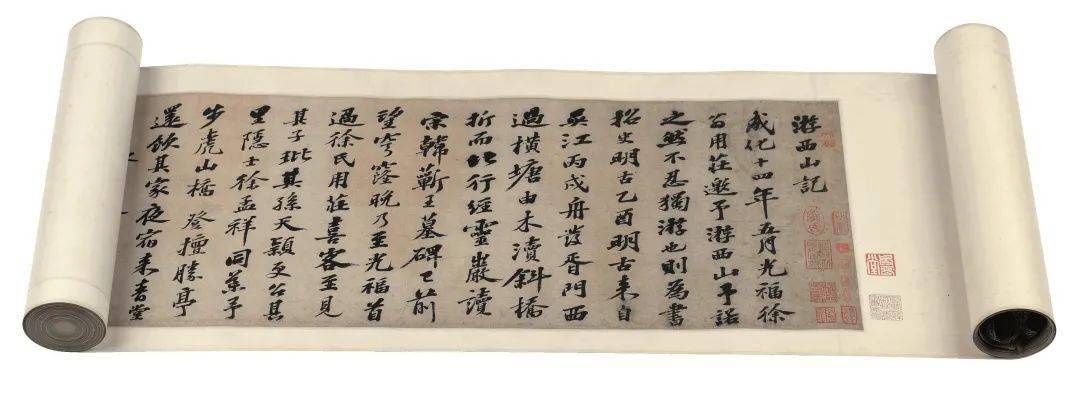 游西山記
成化十四年五月光福徐
翁用莊邀予游西山予諾
之然不忍獨游也則為書
招史明古乙酉明古來自
吳江丙戌舟發胥門西
過橫塘由木瀆斜橋
折而北行經靈巖讀
宋韓蘄王墓碑已前
望穹窿晚乃至光福首
過徐氏用莊喜客至見
其子玭其孫天穎其
里隱士徐孟祥同
步虎山橋登擅勝亭
還飲其家夜宿来青堂